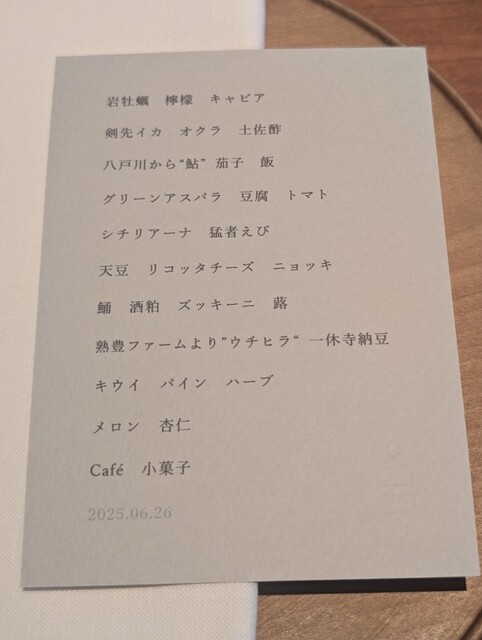 岩牡蠣　檸檬　キャビア
剣先イカ　オクラ　土佐酢
八戸川から“鮎” 茄子　飯
グリーンアスパラ　豆腐　トマト
シチリアーナ　猛者えび
天豆　リコッタチーズ　ニョッキ
鯒　酒粕　ズッキーニ　蕗
熟豊ファームより”ウチヒラ“ 一休寺納豆
キウイ　パイン　ハーブ
メロン　杏仁
Café　小菓子
2025.06.26